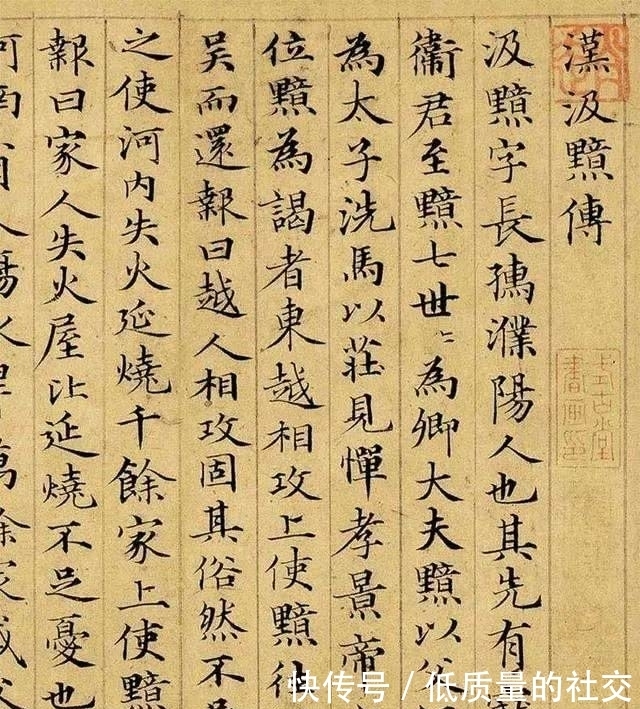 漢汲黯傳
汲黯字長孺濮陽人也其先有
衞君至黯七世〻為卿大夫黯以父
為太子洗馬以莊見憚孝景帝
位黯為謁者東越相攻上使黯往
吴而還報曰越人相攻固其俗然不足
之使河内失火延燒千餘家上使黯
報曰家人失火屋比延燒不足憂也
河南人傷水旱萬餘家或父
式古堂
書畫印
快传号 / 低质量的社交